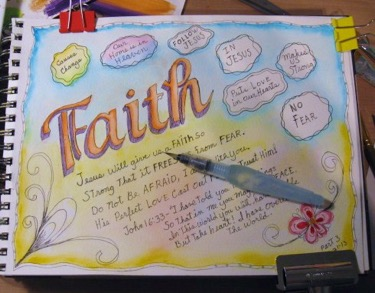 Causes
Change
Our
Home is in
Heaven
FOLLOW
JESUS
IN
JESUS
Makes
US
Strong
Puts Love
in our Hearts
NO
FEAR
Faith
Jesus will give us a FAITH so
Strong that it FREES us from FEAR.
Do Not Be AFRAID, I am with you.
His Perfect LOVE Cast Out Trust Him!
John 16:33 "I have told you
So that in me you may PEACE
In this world you will have
But take heart! I have overcome
the World.
Part 3